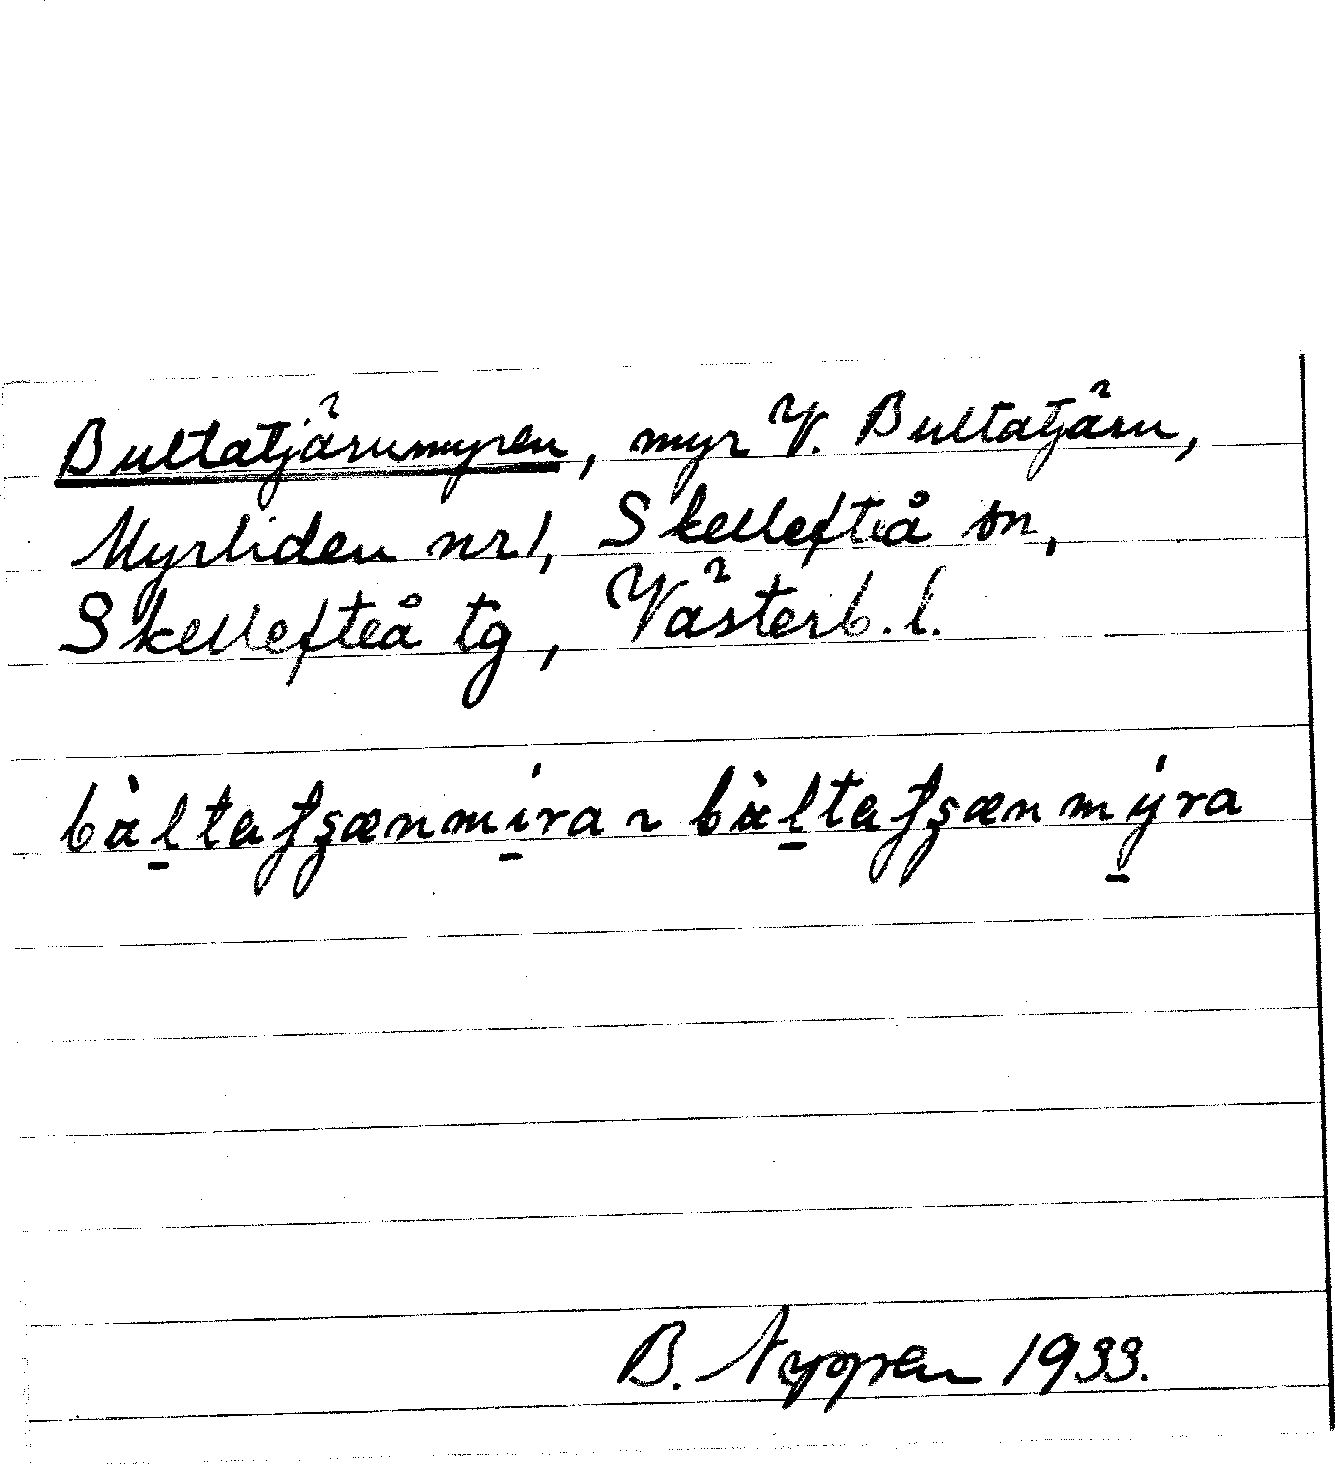 Bultatjärnmyren, myr V. Bultatjärn,
Myrliden nr 1, Skellefteå sn,
Skellefteå tg, Västerb. l.
B. Nygren 1933.